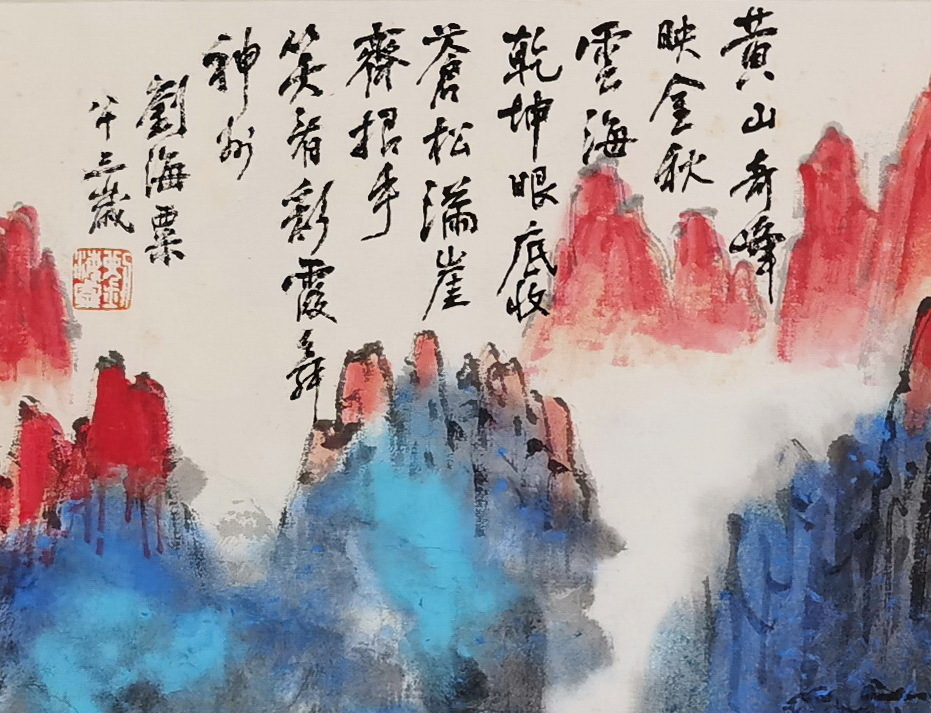 黄山奇峰
映金秋
雲海
乾坤眼底收
蒼松滿崖
齊招手
笑看彩霞舞
神州
劉海粟
八十三歲